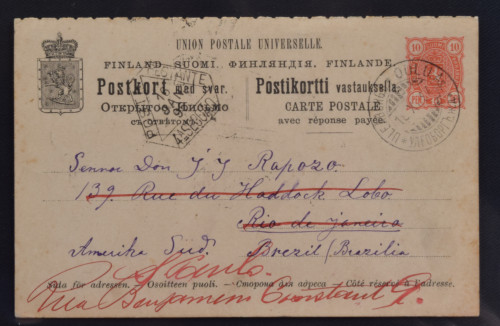 UNION POSTALE UNIVERSELLE.
FINLAND. SUOMI. ФИНЛЯНДІЯ. FINLANDE.
10 10
Postkort med svar. Postikortti vastauksella
Открытое Письмо CARTE POSTALE
съ отвѣтомъ. avec réponse payée.
Sennor Don J J Rapozo.
139. Rue du Haddock Lobo.
Rio de janeira
Amerika Süd. Brezil (Brazilia
Sida för adressen. - Osoitteen puoli. - Сторона для адреса - Côté réservé à l'adresse.
Rua Benjamin Constant